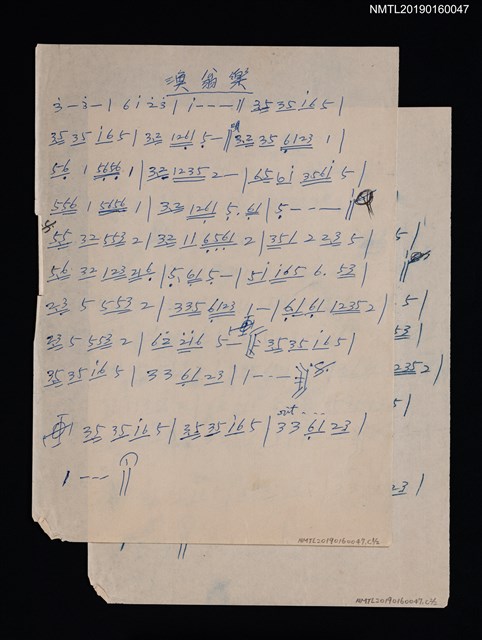 NMTL20190160047
漁翁樂
3̇ - 3̇ - | 6 i 2̇ 3̇ | i - - - || 35 35 i6 5 |
35 35 i6 5 | 32 1261 5 - || 32 35 6123 1 |
56 1 5656 1 | 32 1235 2 - | 65 6i 356i 5 |
556 1 5656 1 | 32 1261 5. 61 | 5 - - - ||
55 32 553 2 | 32 11 6561 2 | 351 2 23 5 |
56 32 123 216 | 5. 61 5 - | 5i i65 6. 53 |
23 5 553 2 | 335 6123 1 - | 6161 1235 2 |
23 5 553 2 | i2̇ 2̇i6 5 - || 35 35 i6 5 |
35 35 i6 5 | 3 3 61 23 | 1 - - - ||
rit - - -
35 35 i6 5 | 35 35 i6 5 | 3 3 61 23 |
1 - - - ||
5 |
53 |
235 2 |
5 |
23 |
NMTL20190160047.C1/2
NMTL20190160047.C2/2